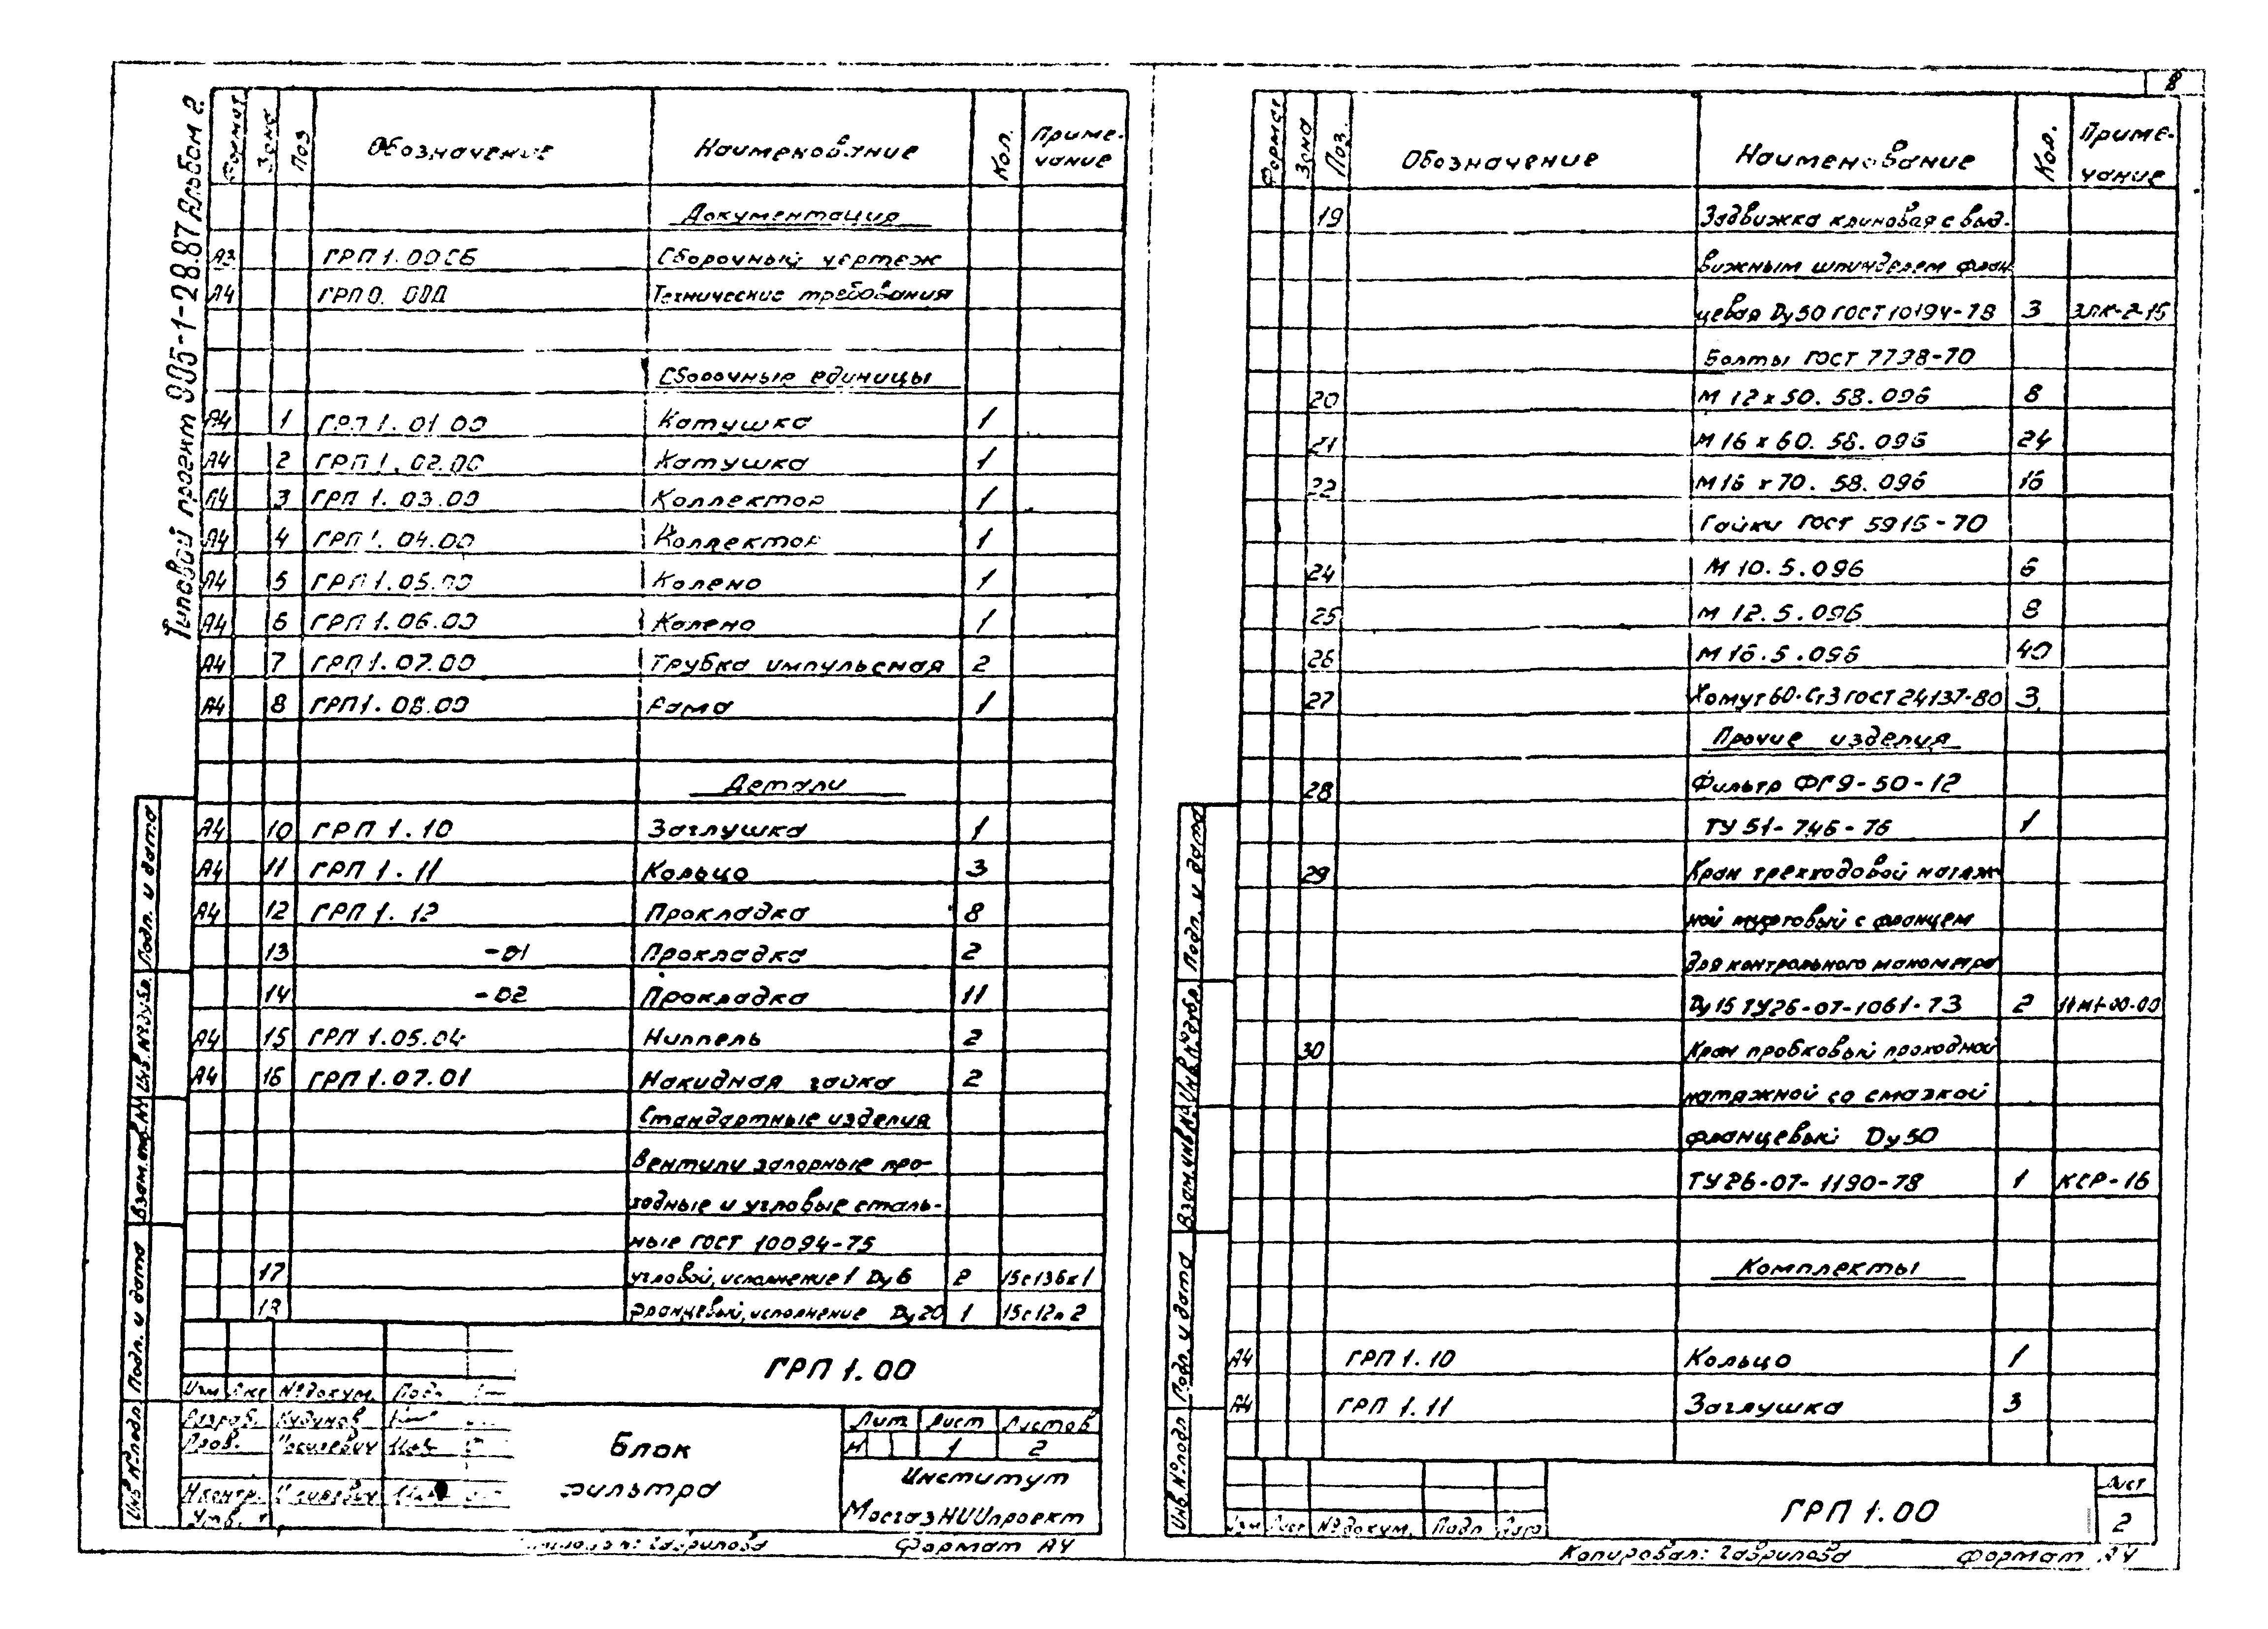 8
Типовой проект 905-1-28.87 Альбом 2
Формат Зона Поз. Обозначение Наименование Кол. Приме-
чание
Документация
А3 ГРП 1.00 СБ Сборочный чертеж
А4 ГРП 0. 00Д Технические требования
Сборочные единицы
А4 1 ГРП 1.01.00 Катушка 1
А4 2 ГРП 1.02.00 Катушка 1
А4 3 ГРП 1.03.00 Коллектор 1
А4 4 ГРП 1.04.00 Коллектор 1
А4 5 ГРП 1.05.00 Колено 1
А4 6 ГРП 1.06.00 Колено 1
А4 7 ГРП 1.07.00 Трубка импульсная 2
А4 8 ГРП 1.08.00 Рама 1
Детали
А4 10 ГРП 1.10 Заглушка 1
А4 11 ГРП 1.11 Кольцо 3
А4 12 ГРП 1.12 Прокладка 8
13 -01 Прокладка 2
14 -02 Прокладка 11
А4 15 ГРП 1.05.04 Ниппель 2
А4 16 ГРП 1.07.01 Накидная гайка 2
Стандартные изделия
Вентили запорные про-
ходные и угловые сталь-
ные ГОСТ 10094-75
17 угловой, исполнение 1 Ду6 2 15с13бк1
18 фланцевый, исполнение Ду20 1 15с12п2
ГРП 1.00
Изм Лист № докум. Подп.
Разраб.
Пров.
Н.контр.
Утв.
Блок
фильтра
Лит Лист Листов
И 1 2
Институт
МосгазНИИпроект
Копировал: Гаврилова Формат А4
Инв. № подл. Подп. и дата Взам. инв. № Инв. № дубл. Подп. и дата
Формат Зона Поз. Обозначение Наименование Кол. Приме-
чание
19 Задвижка клиновая с выд-
вижным шпинделем флан
цевая Ду50 ГОСТ 10194-78 3 ЗЛК-2-15
Болты ГОСТ 7798-70
20 М 12х50.58.096 8
21 М 16х60.58.096 24
22 М16х70.58.096 16
Гайки ГОСТ 5915-70
24 М 10.5.096 6
25 М 12.5.096 8
26 М 16.5.096 40
27 Хомут 60-Ст3 ГОСТ 24137-80 3
Прочие изделия
28 Фильтр ФГ9-50-12
ТУ 51-746-76 1
29 Кран трехходовой натяж
ной муфтовый с фланцем
для контрольного манометра
Ду15 ТУ26-07-1061-73 2 11М1-00-00
30 Кран пробковый проходной
натяжной со смазкой
фланцевый Ду50
ТУ26-07-1190-78 1 КСР-16
Комплекты
А4 ГРП 1.10 Кольцо 1
А4 ГРП 1.11 Заглушка 3
ГРП 1.00
Лист
2
Изм Лист № докум. Подп Дата
Копировал: Гаврилова Формат А4
Инв. № подл Подп. и дата Взам. инв. № Инв. № дубл. Подп. и дата